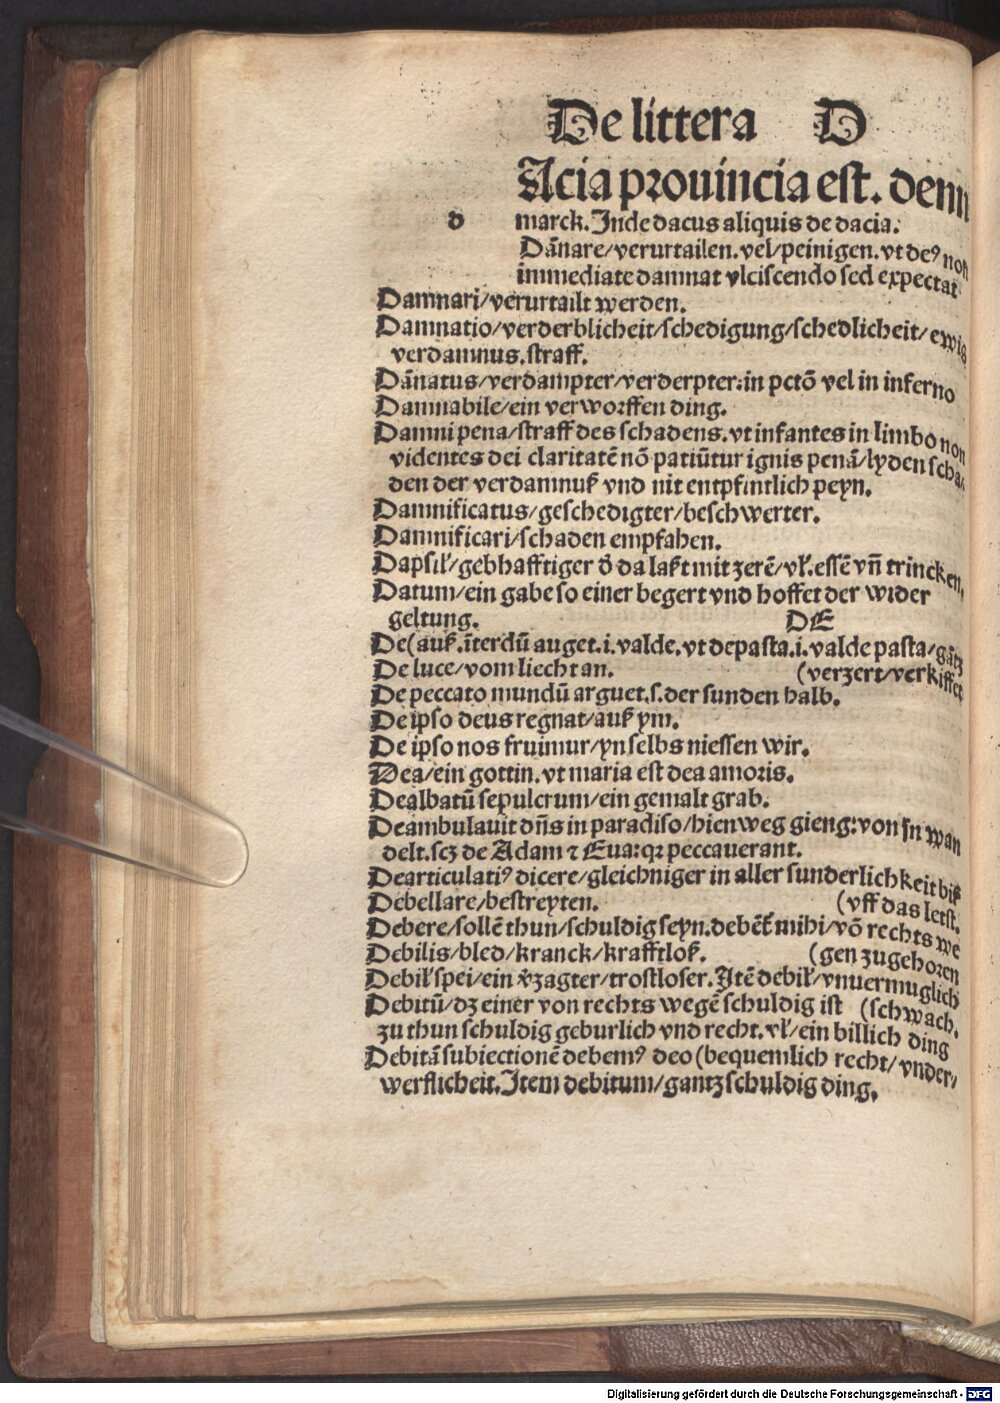 De littera D
Acia prouincia est. denn
d marck. Inde dacus aliquis de dacia.
Dãnare/verurtailen. vel/peinigen. vt deꝰ non
immediate damnat vlciscendo sed expectat
Damnari/verurtailt werden.
Damnatio/verderblicheit/schedigung/schedlicheit/ewig
verdamnus. straff.
Dãnatus/verdampter/verderpter: in pctõ vel in inferno
Damnabile/ein verworffen ding.
Damni pena/straff des schadens. vt infantes in limbo non
videntes dei claritatẽ nõ patiũtur ignis penã/lyden scha/
den der verdamnuß vnd nit entpfintlich peyn.
Damnificatus/geschedigter/beschwerter.
Damnificari/schaden empfahen.
Dapsiľ/gebhafftiger d̕ da laßt mit zerẽ/vľ. essẽ vñ trincken.
Datum/ein gabe so einer begert vnd hoffet der wider
geltung. DE
De(auß. ĩterdũ auget. i. valde. vt depasta. i. valde pasta/gãtz
De luce/vom liecht an. (verzert/verkiffet
De peccato mundũ arguet. s. der sunden halb.
De ipso deus regnat/auß ym.
De ipso nos fruimur/yn selbs niessen wir.
Dea/ein gottin. vt maria est dea amoris.
Dealbatũ sepulcrum/ein gemalt grab.
Deambulauit dñs in paradiso/hienweg gieng: von jn wan
delt. scꝫ de Adam ⁊ Eua: qꝛ peccauerant.
Dearticulatiꝰ dicere/gleichniger in aller sunderlichkeit biß
Debellare/bestreyten. (vff das letst.
Debere/sollẽ thun/schuldig seyn. debẽt̃ mihi/võ rechts we
Debilis/bled/kranck/krafftloß. (gen zugehoren
Debiľ spei/ein v̕zagter/trostloser. Itẽ debiľ/vnuermuglich
Debitũ/dꝫ einer von rechts wegẽ schuldig ist (schwach.
zu thun schuldig geburlich vnd recht. vľ/ein billich ding
Debitã subiectionẽ debemꝰ deo(bequemlich recht/vnder/
werflicheit. Item debitum/gantz schuldig ding.
Digitalisierung gefördert durch die Deutsche Forschungsgemeinschaft - DFG